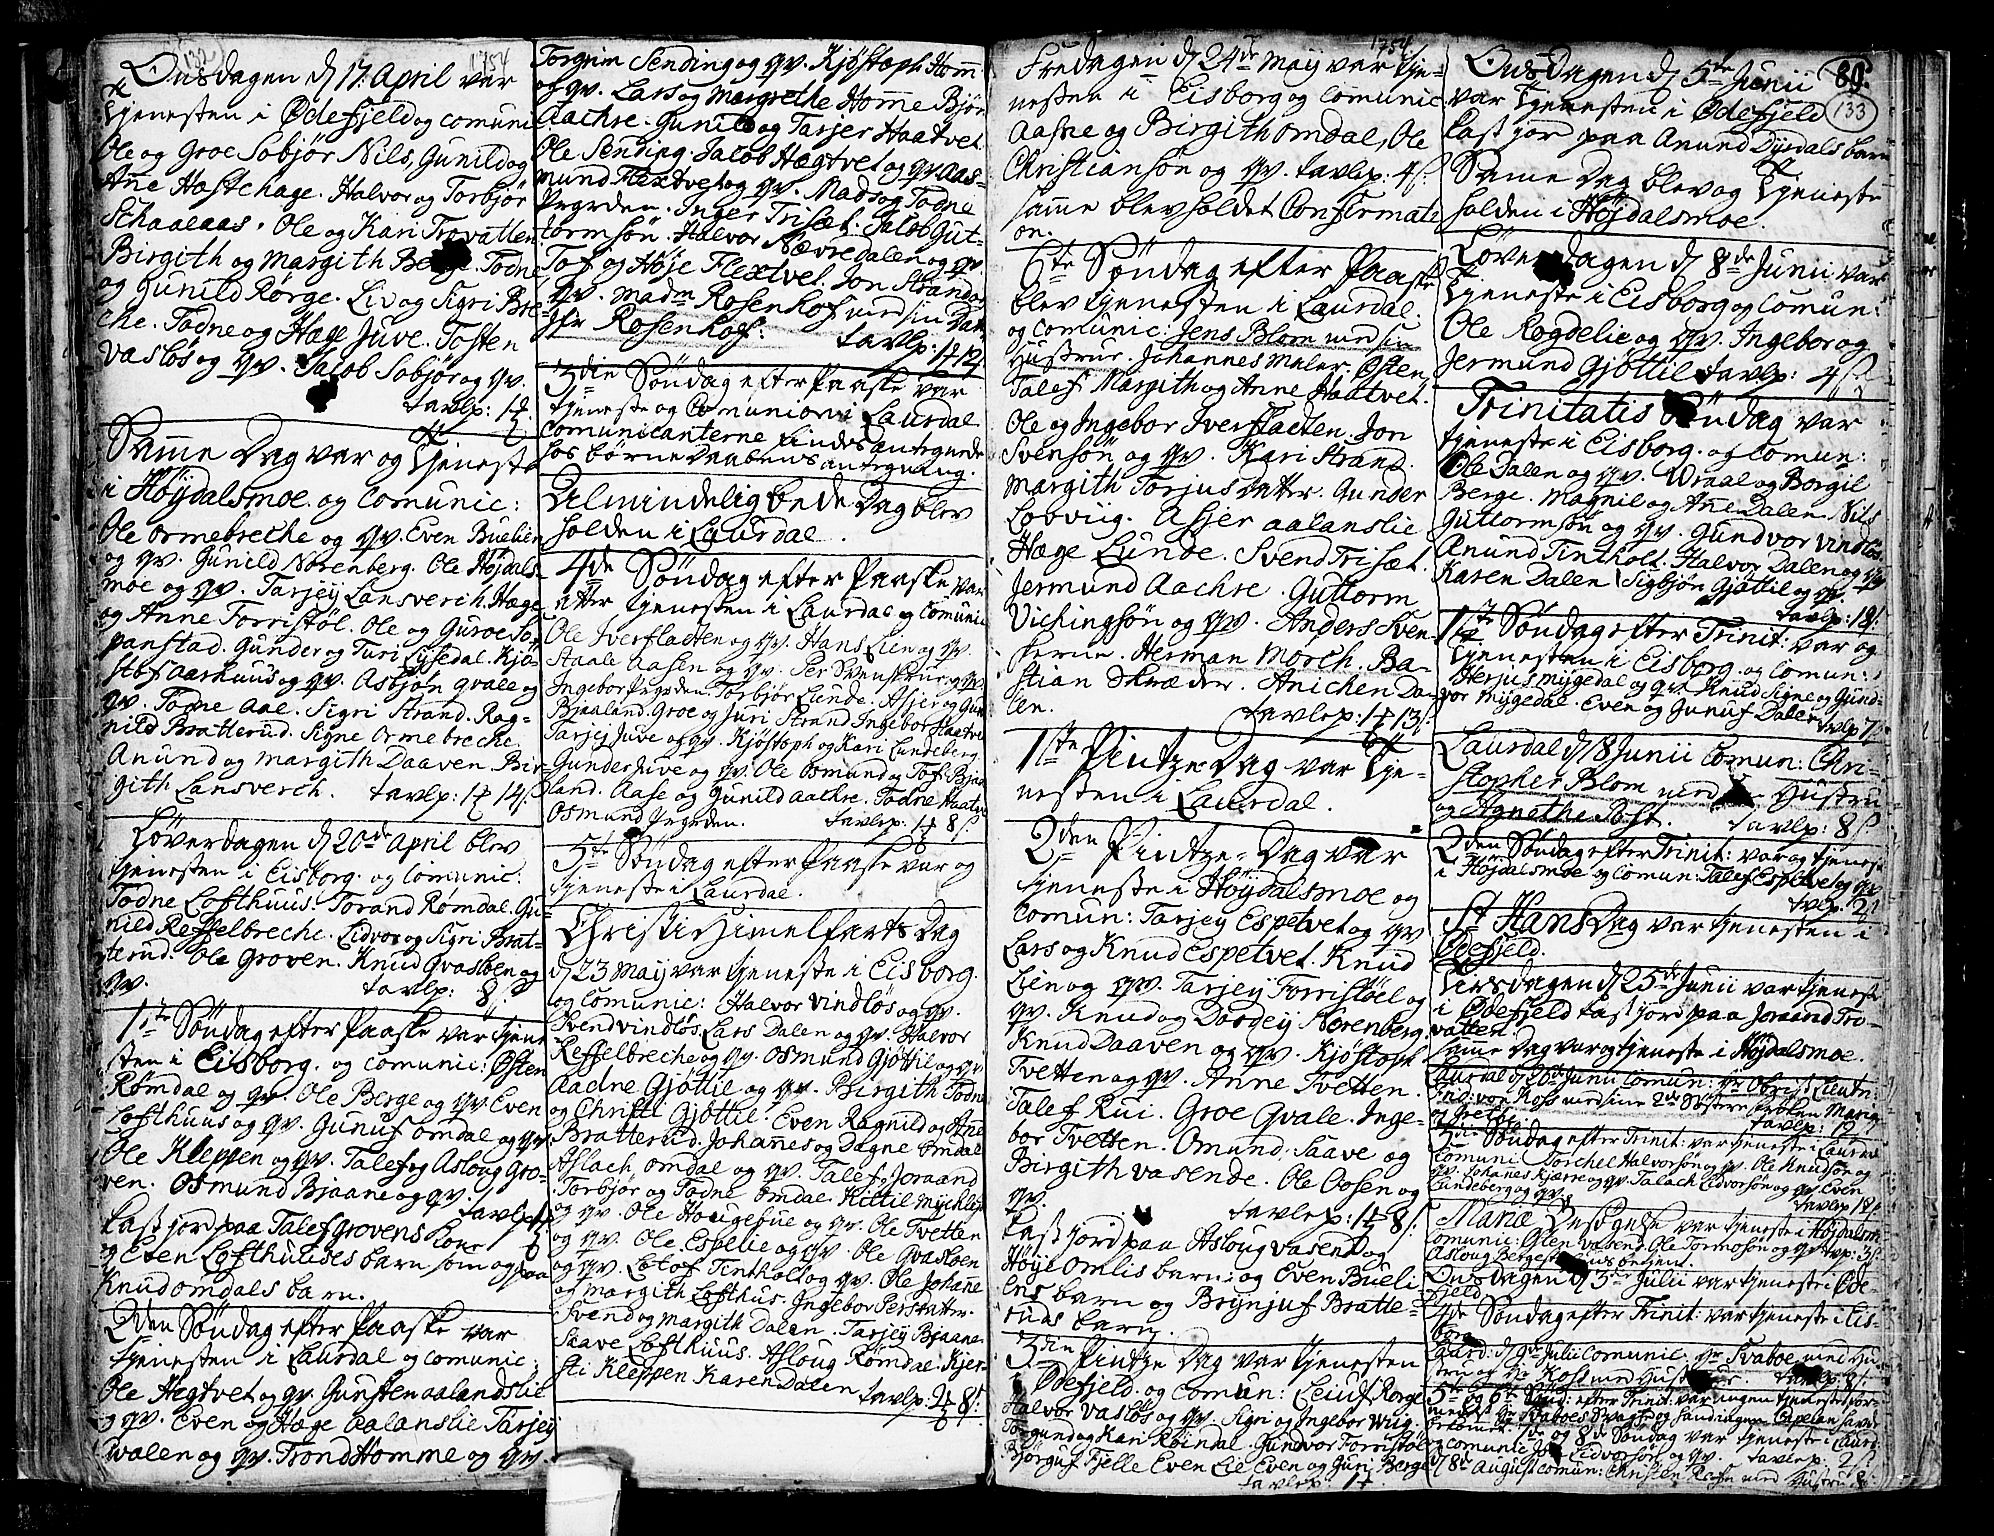 132
1754
Onsdagen d 17. April var
Tjenesten i Ødefjeld og comuni
Ole og Groe Sobjør Nils, Gunild og
Anne Hastehage. Halvor og Torbjør
Schaalaas. Ole og Kari Trovatten
Birgith og Margith Berge. Todne
og Gunild Rørge. Liv og Sigri Bre-
che. Todne og Hæge Juve. Tosten
Vasløs og qv. Jacob Sobjør og qv.
tavlp: 1
Samme Dag var og Tjeneste
i Høydalsmoe. og Comunic:
Ole Ormebreche og qv. Even Buelien
og qv. Gunild Norenberg. Ole Høydals-
moe og qv. Tarjey Lansverch. Hæge
og Anne Forristøl. Ole og Guroe So-
panstad. Gunder og Turi Lysedal. Kjø-
stof Aarhuus og qv. Asbjøn Qvale og
qv. Todne Aae. Sigri Strand. Rag-
nild Bratterud. Signe Ormebreche.
Anund og Margith Daaven. Bir-
gith Lansverch. tavlp: 1 14
Løverdagen d 20de April blev
tjenesten i Eisborg. og Comunic:
Todne Lofthuus. Torand Rømdal. Gu-
nild Reffelbreche. Lidvor og Sigri Brat-
terud. Ole Groven. Knud Qvasloen og
qv. tavlp: 8
1te Søndag efter Paaske var tjene
sten i Eisborg. og comunic: Østen
Rømdal og qv. Ole Berge og qv. Even
Lofthuus og qv. Gunuf Omdal og qv
Ole Kleppen og qv. Talef og Asloug Gro-
ven. Osmund Bjaane og qv.
tavlp: 1
Kast jord paa Talef Grovens kone
og Even Lofthuuses barn som og paa
Knud Omdals barn.
2den Søndag efter Paaske var
tjenesten i Laurdal og comunic:
Ole Hegtvet og qv. Gunsten Aalandslie
og qv. Even og Hæge Aalanslie Tarjey
Walen og qv. Trond Homme og qv.
Torgrim Sending og qv. Kjøstoph Homm
og qv. Lars og Margrethe Homme Bjør
Aachre. Gunild og Tarjer Haatvet
Ole Sending. Jacob Hægtvet og qv Aas-
mund Flextvet og qv. Mads og Todne
Prgrden. Inger Trisæt. Jacob Gut-
tormsøn. Halvor Nævredalen og qv.
Tof og Høje Flextvet. Jon Strand og
qv. Madm Rosenhof med sin Dat-
ter Rosenhof. tavlp: 1 12
3die Søndag efter Paaske var
tjeneste og Comunion i Laurdal
Comunicanterne findes antegnede
hos børne Daabens antegning.
Almindelig bede Dag blev
holden i Laurdal.
4de Søndag efter Paaske var
atter tjenesten i Laurdal og Comunic
Ole Iverfladten og qv. Hans Lien og qv.
Staale Aasen og qv. Per Svenskrue og qv
Ingebor Prgrden. Torbjør Lunde. Asjer og Gun
Bjaaland. Groe og Juri Strand Ingebor Haatvet
Tarjej Juve og qv. Kjøstoph og Kari Lundeberg
Gunder Juve og qv. Ole Osmund og Tof Bjaa
land. Aase og Gunild Aachre. Todne Haatve
Osmund Prgrden. tavlp: 1 8
5te Søndag efter Paaske var og
tjeneste i Laurdal.
Christi Himmelfarts Dag
d 23 Maij var tjeneste i Eisborg.
og Comunic: Halvor Vindløs og qv.
Svend Vindløs. Lars Dalen og qv. Halvor
Reffelbreche og qv. Osmund Gjøttil og qv
Aadne Gjøttil og qv. Birgith Todne
og Christi Gjøttil. Even Ragnild og Ane
Bratterud. Johannes og Dagne Omdal
Aslach Omdal og qv. Talef, Joraand
Torbjør og Todne Omdal. Kittil Mychlest
og qv. Ole Hougetue og qv. Ole Tvetten
og qv. Ole Espelie og qv. Ole Qvasloen
og qv. Lotof Tintholt og qv. Ole Johanne
og Margith Lofthus. Ingebor Persdatter.
Svend og Margith Dalen. Tarjey Bjaane
Saave Lofthuus. Asloug Rømdal. Kjer-
sti Kleppen Karen Dalen tavlp: 2 8
1754
Fredagen d 24de Maij var tje-
nesten i Eisborg og comunic
Aasne og Birgith Omdal, Ole
Christianson og qv. tavlp: 4
samme blev holdet Confirmati
on.
6te Søndag efter Paaske
blev tjenesten i Laurdal.
og comunic: Jens Blom med sin
Hustrue. Johannes Maler. Østen
Talef Margith og Anne Haatvet.
Ole og Ingebor Iverfladten. Jon
Svensøn og qv. Kari Strand.
Margith Torjusdatter. Gunder
Lobviig. Asjer Aalanslie
Hæge Lunde. Svend Trisæt.
Jermund Aachre. Guttorm
Vichingsøn og qv. Anders Sven
skerne. Herman Morch. Ba-
stian Skræder. Anichen Da-
len. tavlp: 1 13
1ste Pintze Dag var tje-
nesten i Laurdal.
2den Pintze-Dag var
tjeneste i Høydalsmoe og
Comun: Tarjey Espetvet og qv
Lars og Knud Espetvet. Knud
Lien og qv. Tarjey Forristøel og
qv. Knud og Dordej Norenberg.
Knud Daaven og qv. Kjøstoph
Tvetten og qv. Anne Tvetten.
Talef Rui. Groe Qvale. Inge-
bor Tvetten. Omund. Saave og
Birgith Vasende. Ole Oosen og
qv. tavlep: 1 8
Kast jord paa Asloug Vasend og
Høije Omlis barn: og Even Bueli
ens barn og Brynjuf Bratte-
ruds barn.
3die Pintze Dag var tjenesten
i Ødefjeld. og comun: Leiuf Rorge
Halvor Vasløs og qv. Sigri og Ingebor Wiig.
Torgund og Kari Røindal. Gundvor Forristøl
Bjørguf Fjelle Even Lie Even og Guri Berge
tavlep: 1
80.
133
Onsdagen d 5te Junii
var tjenesten i Ødefjeld
kast jor paa Anund Dysdals barn
Samme Dag blev og Tjeneste
holden i Højdalsmoe.
Løverdagen d 8de Junii var
tjeneste i Eisborg og comun:
Ole Rogdelie og qv. Ingebor og
Jermund Gjøttil tavlp: 4
Trinitatis Søndag var
tjeneste i Eisborg. og comun:
Ole Dalen og qv. Wraal og Borgil
Berge. Magnil og Ane Dalen Nils
Guttormsøn og qv. Gundvor Vindløs
Anund Tintholt. Halvor Dalen og qv
Karen Dalen Sigbjøn Gjøttil og qv.
tavlp: 18
1te Søndag efter Trinit: var og
tjenesten i Eisborg. og comun:
Herjus Mygedal og qv. Knud Signe og Gund-
vor Mygedal. Even og Gunuf Dalen tvlp 7
Laurdal d 18 Junii comun: Chri-
stopher Blom med Hustru
og Agnethe Post. tavlp: 8
2den Søndag efter Trinit: var og tjenest
i Højdalsmoe og comun: Talef Espetvet og qv
tvlp. 2
St Hans Dag var tjenesten i
Ødefjeld.
Tirsdagen d 25de Junii var tjeneste
i Ødefjeld kast jord paa Joraand Tro-
vatten.
samme Dag var og tjeneste i Højdalsmoe.
Laurdal d 26de Junii comun: Hr Obrist Lieut:
Frid: von Koss med sine 2de Søstere
tavlep: 12
3die Søndag efter Trinit: var tjenest i Laurda
Comuni: Torchel Halvorsøn og qv. Ole Knudsøn og
qv. Johannes Kjære og qv. Talach Lidvorsøn og qv. Even
Lundeberg og qv. tavlep 18
Mariæ Besögelse var tjeneste i Højdalsm
comunic: Glen Vasend. Ole Tormosøn og qv tvp: 3
Onsdagen d 3de Julii var tjenest i Øde-
fjeld
4de Søndag efter Trinit: var tjenest i Eis-
borg
Gaard: d 9de Julii comunic Hr Svaboe med Hu-
stru og Hr Kost med Hustru tavlp: 8
5te og 6te Sønd: efter Trinit: var ingen tjeneste
7de og 8de Søndag var tjeneste i Laurd
og comunic Lidvorsøn og qv. tavlep: 2
d 8de August comun: Christen med Hustru 8